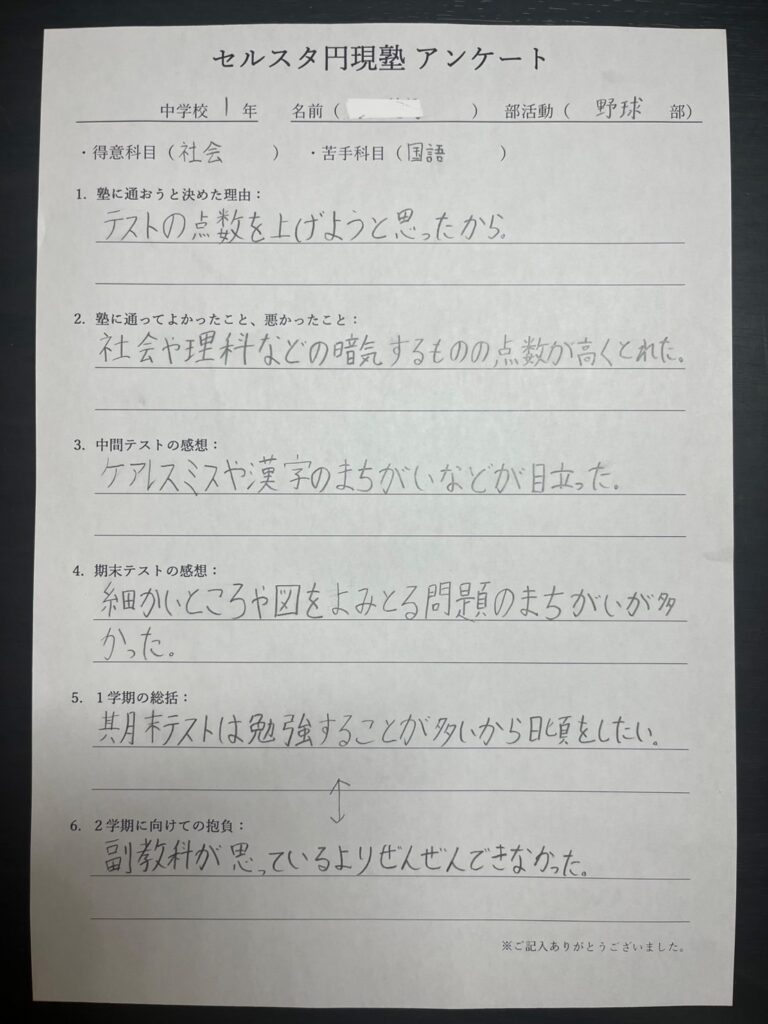 セルスタ円現塾 アンケート
中学校 1 年 名前（ ） 部活動（ 野球 部）
・得意科目（社会 ） ・苦手科目（国語 ）
1. 塾に通おうと決めた理由：
テストの点数を上げようと思ったから。
2. 塾に通ってよかったこと、悪かったこと：
社会や理科などの暗気するものの点数が高くとれた。
3. 中間テストの感想：
ケアレスミスや漢字のまちがいなどが目立った。
4. 期末テストの感想：
細かいところや図をよみとる問題のまちがいが多
かった。
5. 1学期の総括：
期末テストは勉強することが多いから日頃をしたい。
↕
6. 2学期に向けての抱負：
副教科が思っているよりぜんぜんできなかった。
※ご記入ありがとうございました。